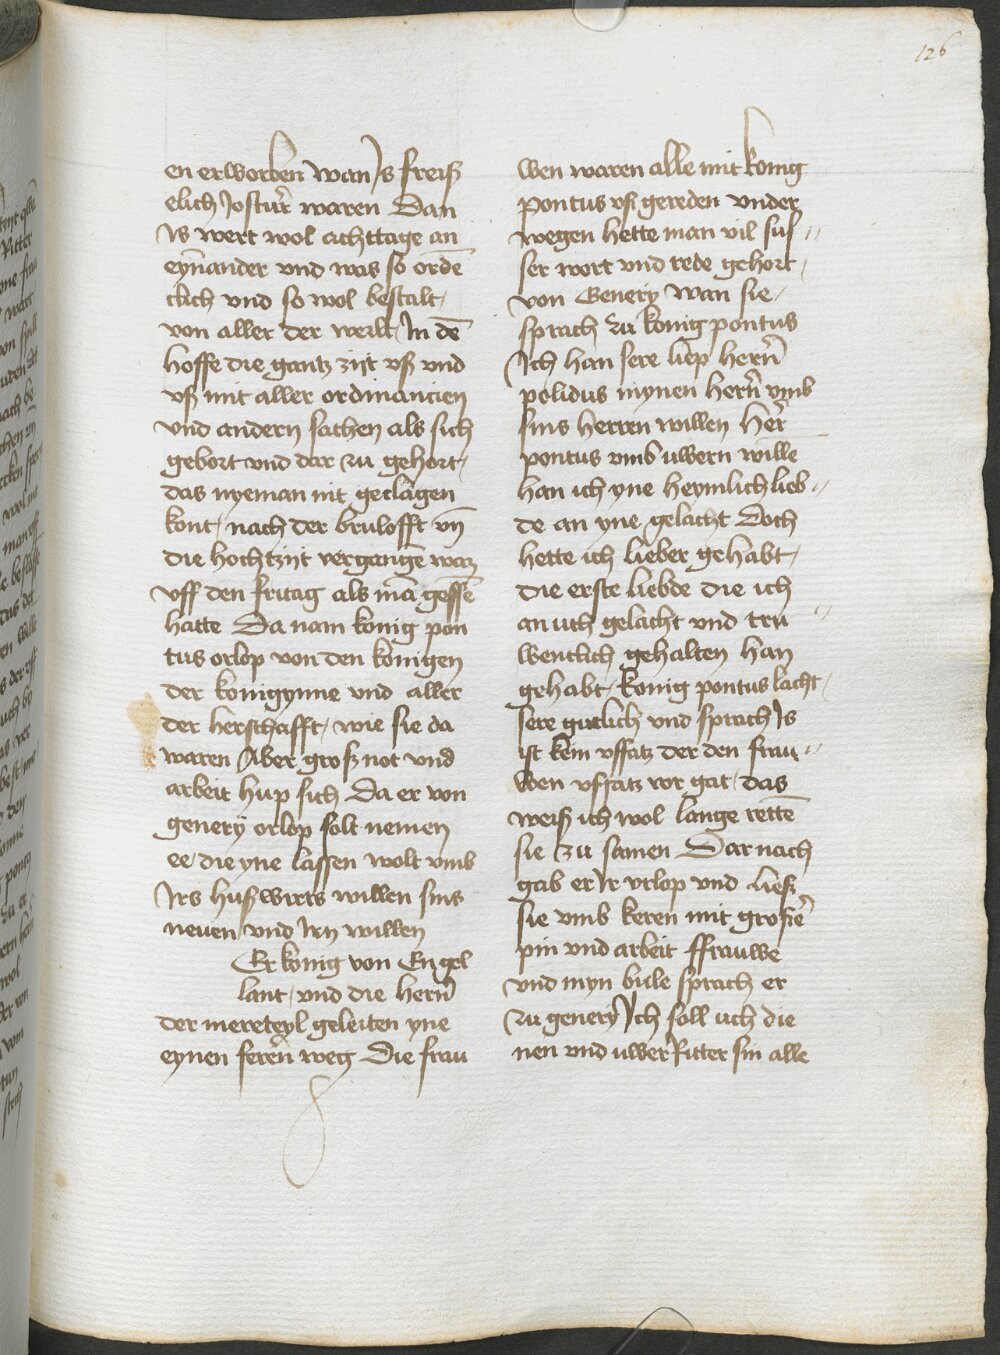 126
en erworben wan Js freiß
elich Jostur̄ waren Dan
Js wert wol achttage an
eyn̄ander vnd was so ordē
clich vnd so wol bestalt /
von aller der werlt Jn dē
hoffe die gantz zijt vß vnd
vß mit aller ordinancien
vnd andern sachen als sich
gebort vnd dar zu gehort /
das nyeman nit geclagen
kont / nach der brulofft vn̄
die hochtzijt vergangē waz
vff den fritag als mā gessē
hatte Da nam konig pon
tus orlop von den konigen
der konigynne vnd aller
der herschafft / wie sie da
waren Aber groß not vnd
arbeit hup sich Da er von
genery orlop solt nemen
ee / die yne lassen wolt vmb
Jrs hußwirts willen sins
neuen vnd Jrn willen
Er konig von Engel
lant / vnd die hern̄
der mereteyl geleiten yne
eynen feren̄ weg Die frau
wen waren alle mit konig
pontus vß gereden vnder
wegen hette man vil suß //
ser wort vnd rede gehort /
von Genery wan sie /
sprach zu konig pontus
Jch han sere liep hern̄
polidus mynen hern̄ vmb
sins herren willen Her̄
pontus vmb uwern wille
han ich yne heymlich lieb //
de an yne gelacht Doch
hette ich lieber gehabt /
die erste liebde die ich
an uch gelacht vnd tru //
wentlich gehalten han
gehabt / konig pontus lacht /
sere gutlich vnd sprach Js
ist kein vffatz der den frau //
wen vffatz vor gat / das
weiß ich wol lange rettē
sie zu samen Dar nach
gab er Jr vrlop vnd ließ
sie vmb keren mit großer̄
pin vnd arbeit ffrauwe
vnd myn bule sprach er
zu genery Jch soll uch die
nen vnd uwer Ritter sin alle